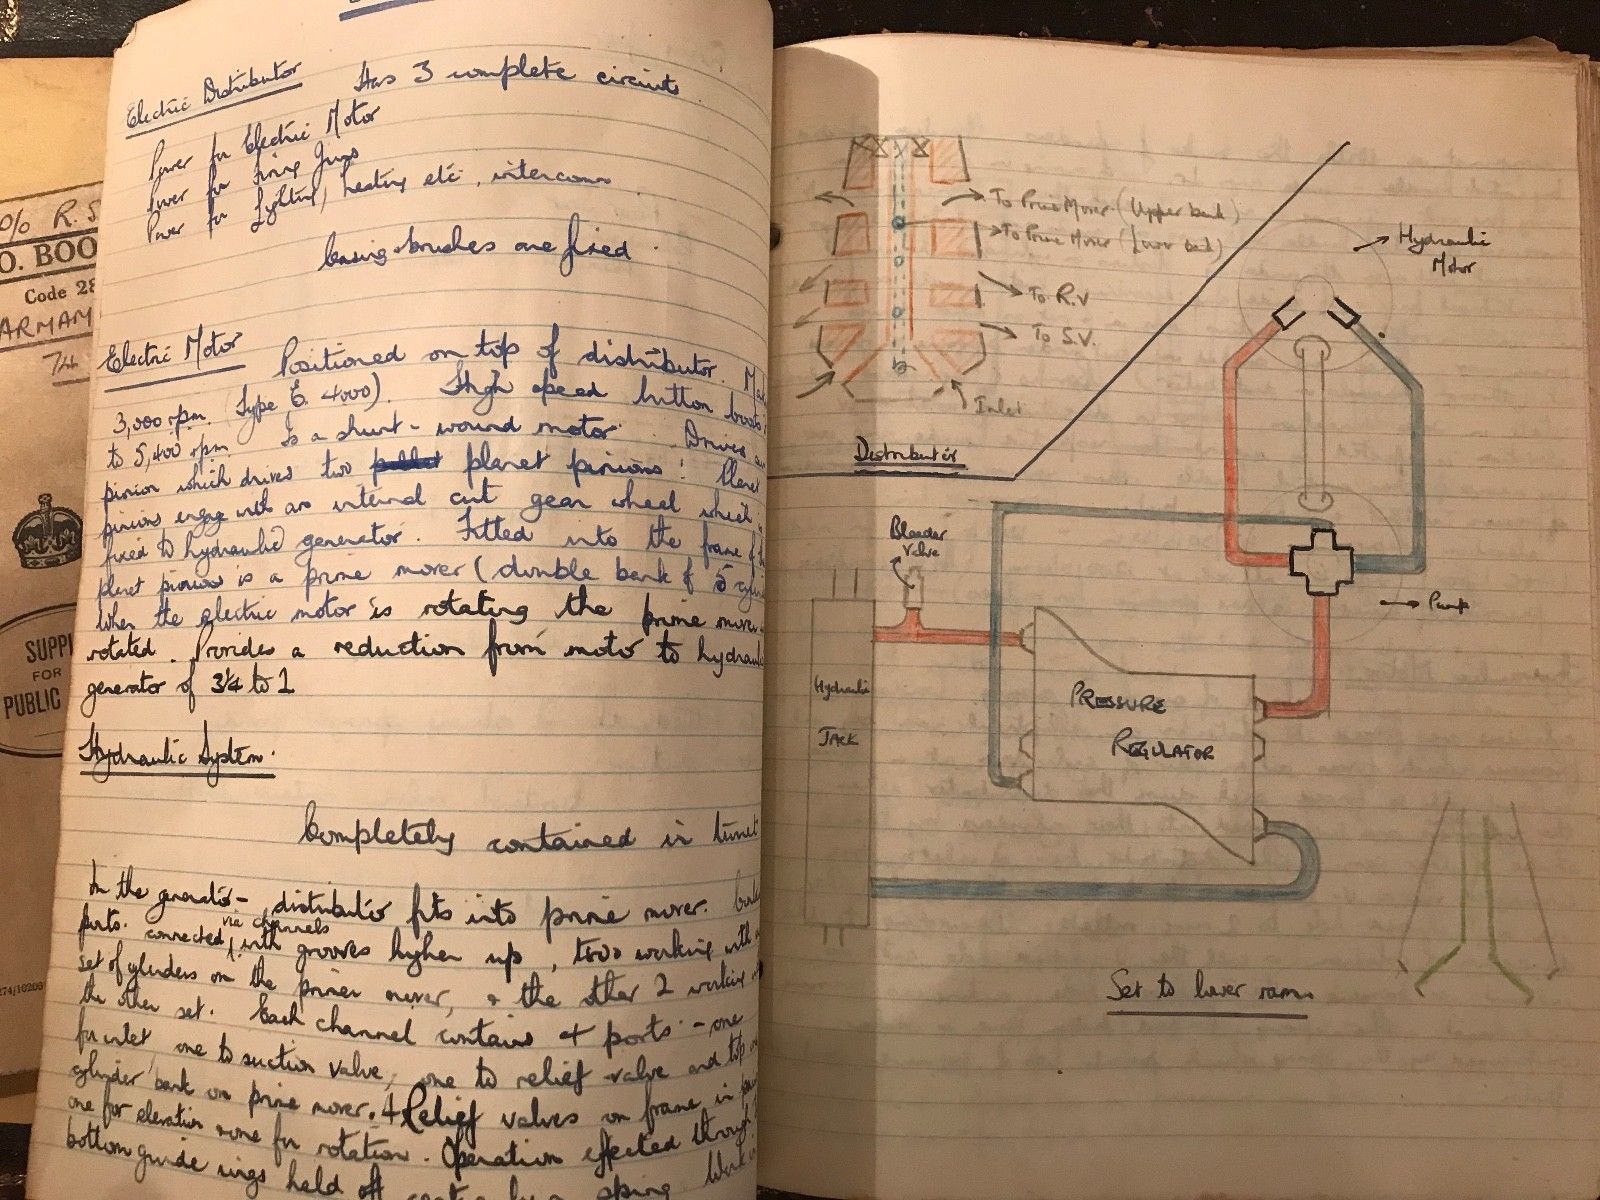 % R.S
O. BOO
Code 28
ARMAM
74
SUPPL
FOR
PUBLIC
Electric Distributor Has 3 complete circuits.
Power for Electric Motor
Power for Firing Guns
Power for Lighting, heating etc, intercomm.
brushes are fixed.
Electric Motor Positioned on top of distributor.
3,000 rpm. (Type E. 4000). High speed button boosts
to 5,400 rpm is a shunt-wound motor. Drives
pinion which drives two planet pinions! Planet
pinions engage with an internal cut gear wheel which
fixed to hydraulic generator. Fitted into the frame of
planet pinions is a prime mover (double bank of 5
When the electric motor is rotating the prime mover
rotated. Provides a reduction from motor to
generator of 3¼ to 1
Hydraulic System.
Completely contained in
In the generator- distributor fits into prime mover.
ports. connected via channels with grooves higher up, two working with
set of cylinders on the primer mover, & the other 2 working
the other set. Each channel contains 4 ports - one
for inlet one to suction valve, one to relief valve and top
cylinder bank on prime mover. 4 Relief valves on frame in
one for elevation & one for rotation. Operation effected through
bottom guide rings held off by a spring
To Prime Mover (Upper bank)
To Prime Mover (Lower bank)
To R.V
To S.V.
Inlet
Distributor
Hydraulic
Motor
Bleeder
Valve
Pump
Hydraulic
Jack
PRESSURE
REGULATOR
Set to lower ram